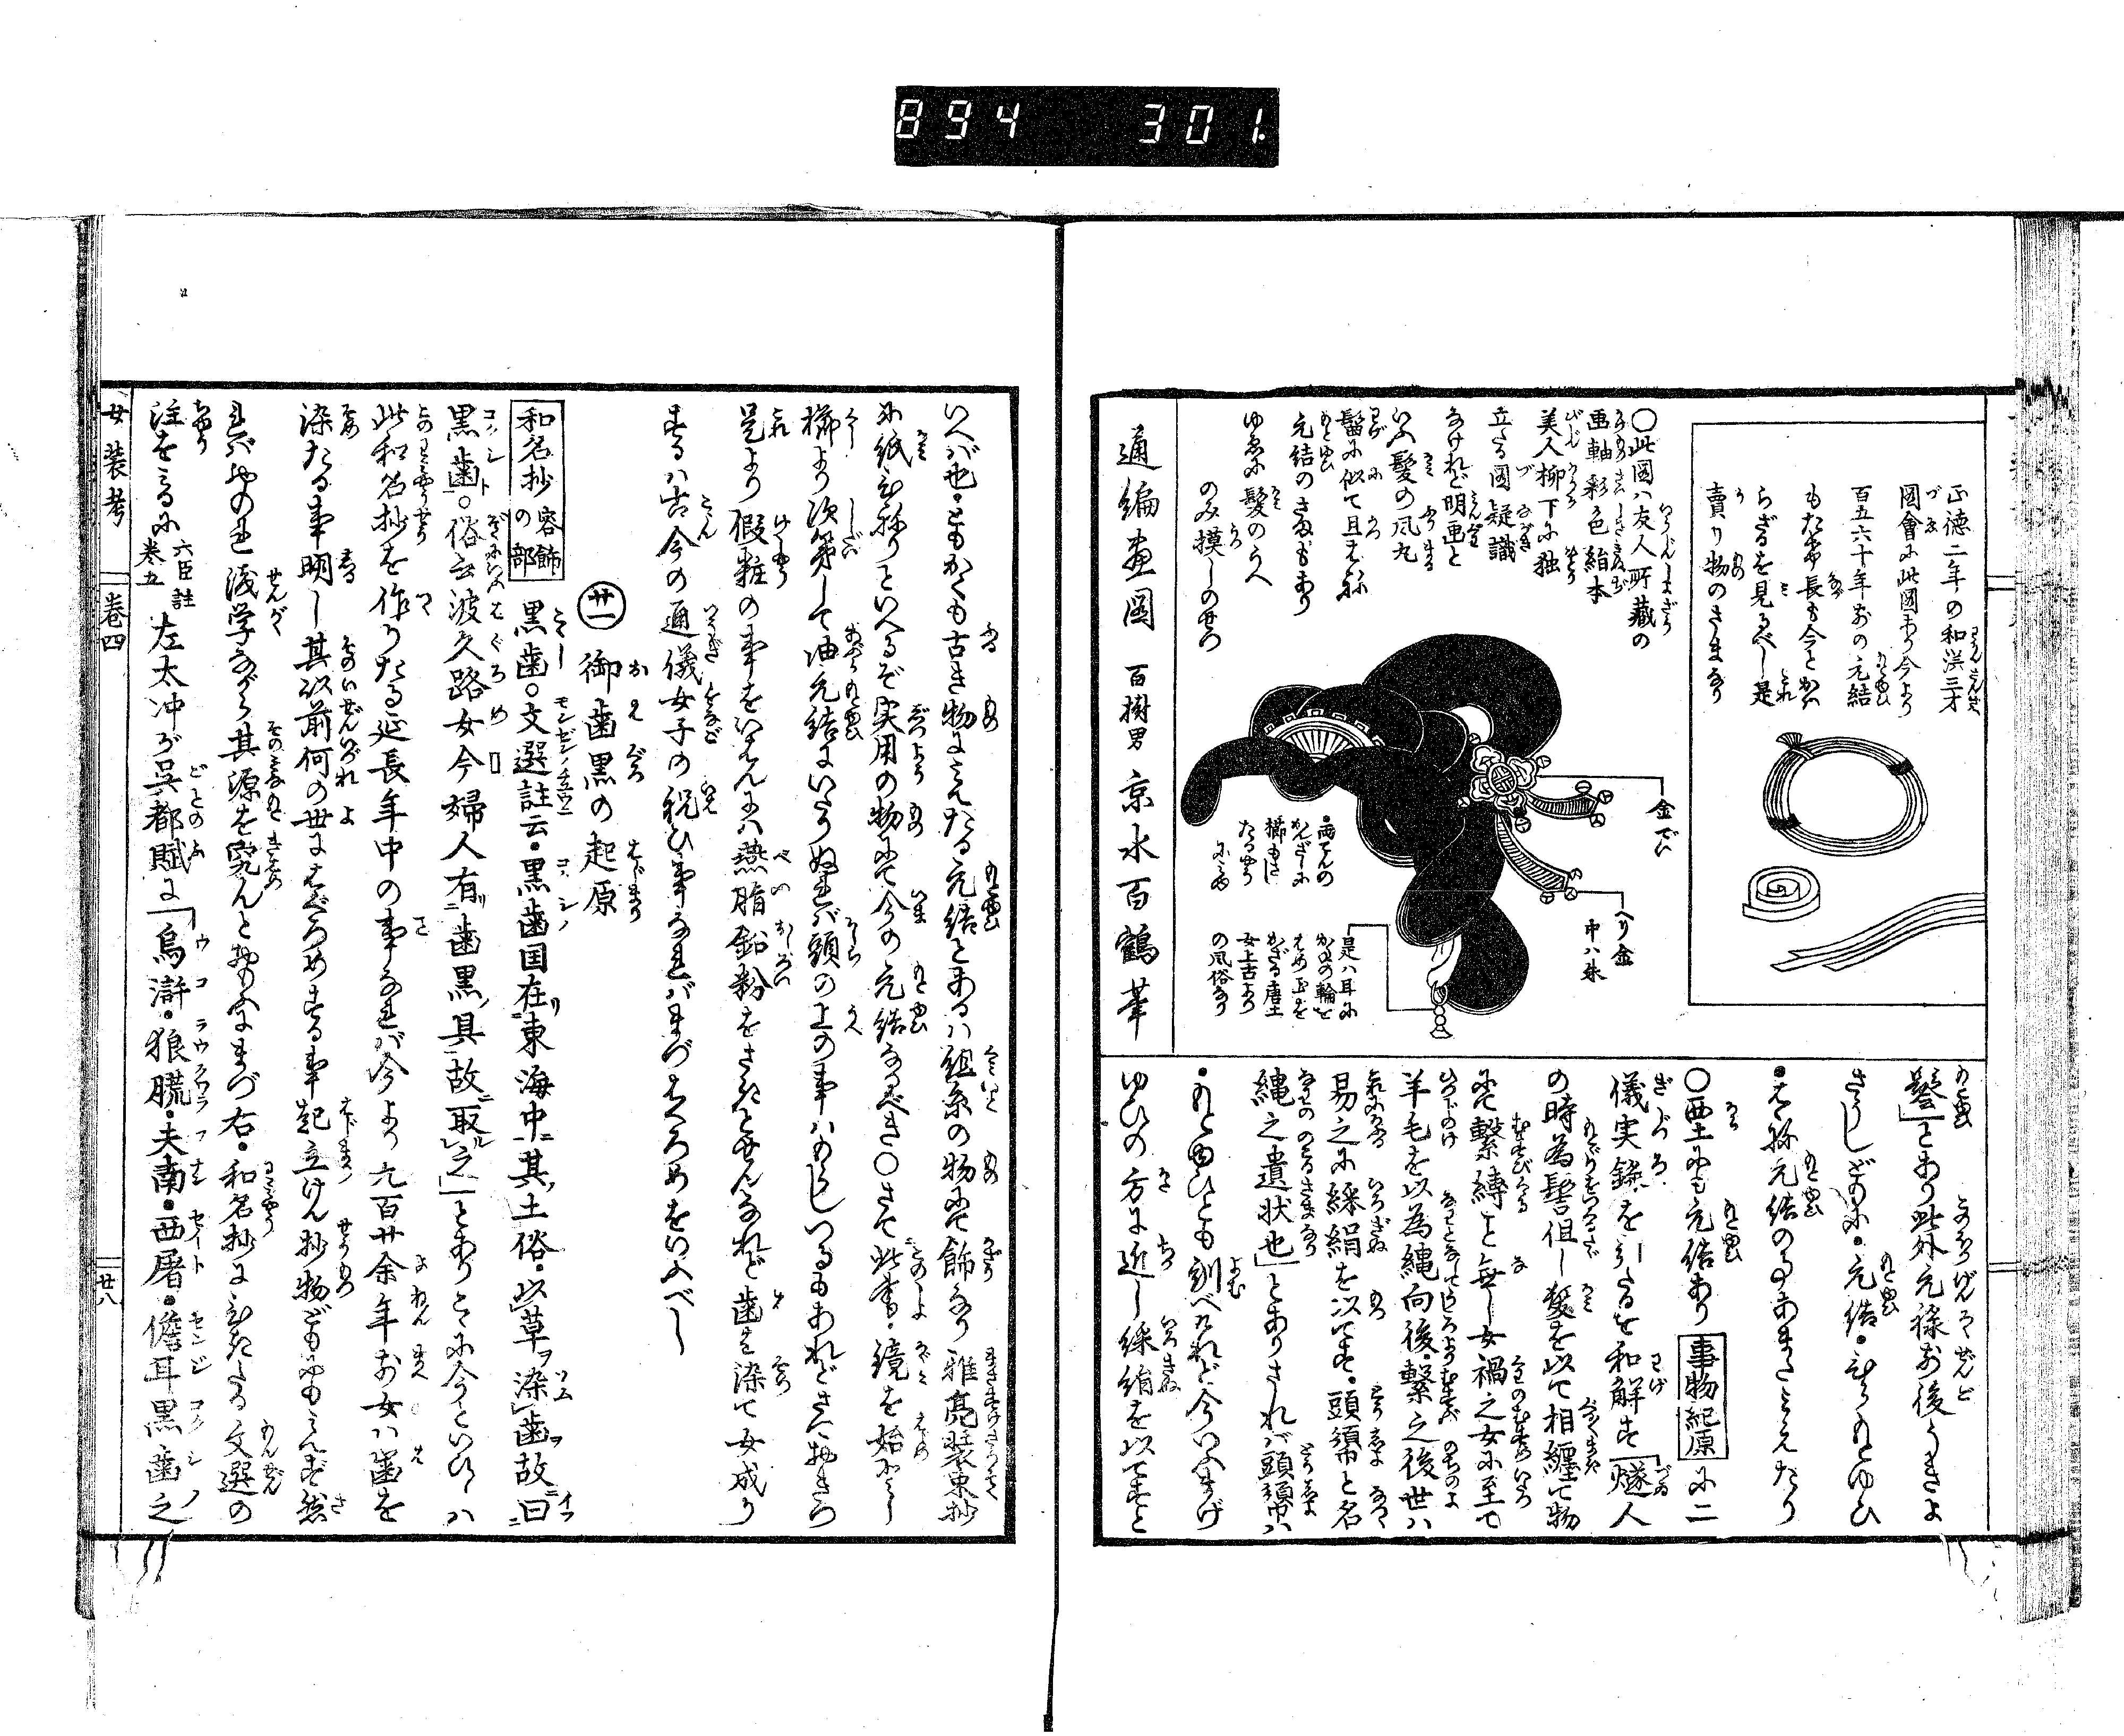 894 301.
正徳二年の和漢三才
圖會に此圖あり今より
百五六十年前の元結
もたけ長も今とかは
らざるを見るべし是
賣り物のさまなり
○此図ハ友人所蔵の
画軸彩色絹本
美人柳下に独
立たる図疑識
なけれど明画と
いふ髪の風丸
髷に似て且はね
元結のさまもあり
ゆゑに髪のうへ
のみ摸しのせつ
金でい
へり金
中ハ朱
是ハ耳に
かねの輪を
はめ玉を
かざる唐土
女上古より
の風俗なり
通編画図 百樹男 京水百鶴筆
髻」とあり此外元禄前後うきよ
さうしどもに・元結・ひらもとゆひ
・はね元結の事あまた見えたり
○西土にも元結あり 事物紀原に二
儀実録を引たるを和解す「燧人
の時為髻但し髪を以て相纏て物
にて繋縛こと無し女禍之女に至て
羊毛を以為縄向後繋之後世ハ
易之に綵絹を以てす・頭𢄼と名
縄之遺状也」とありされバ頭𢄼ハ
・もとゆひとも訓べけれど今いふまげ
ゆひの方に近し綵絹を以てすと
いへバ也・ともかくも古き物に見えたる元結とあるハ組糸の物にて飾なり雅亮装束抄
に紙ひねりといへるぞ実用の物にて今の元結なるべき○さて此書・鏡を始とし
櫛より次第して油元結にいたりぬれバ頭の上の事ハのこしつるもあれどさておきつ
是より假粧の事をいはんにハ燕脂鉛粉をさきとせんなれど歯を染て女成り
するハ古今の通儀女子の祝ひ事なれバまづはぐろめをいふべし
廿一 御歯黒の起原
和名抄容飾の部 黒歯○文選註云・黒歯国在東海中其土俗・以草染歯故曰
黒歯○俗云波久路女今婦人有歯黒具故取之」とありこゝに今といひしハ
此和名抄を作りたる延長年中の事なれバ今より九百廿余年前女ハ歯を
染たる事明し其以前何の世にはぐろめする事起立けん抄物どもにも見えず然
れバおのれ浅学ながら其源を窮んとおもふにまづ右・和名抄に引たる文選の
注を見るに六臣註巻五左太冲が呉都賦に「烏滸・狼䐠・夫南・西屠・儋耳黒歯之
女装考 巻四 廿八